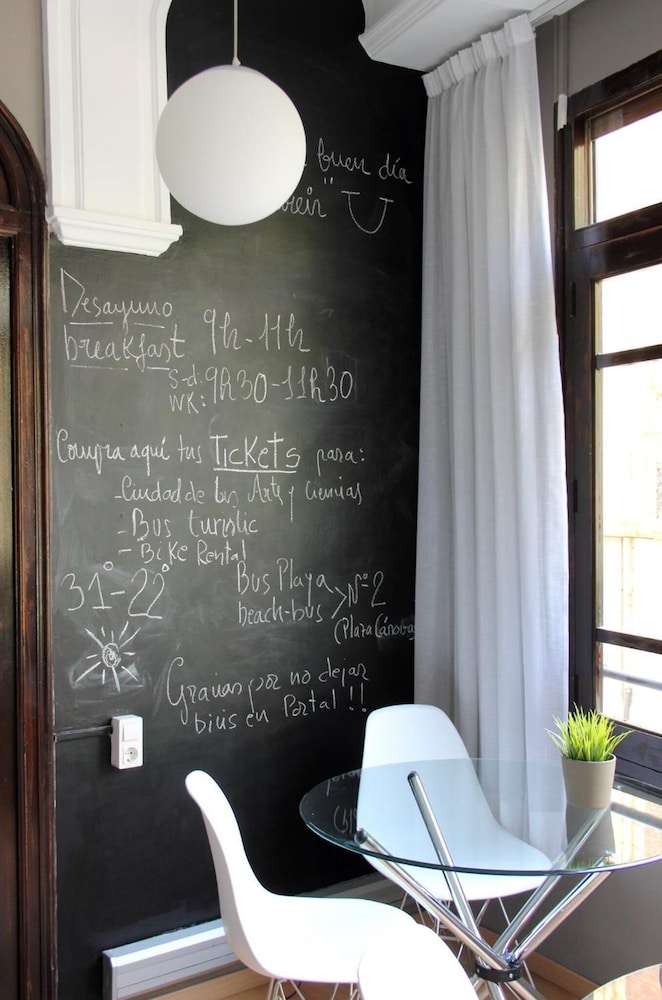 buen día
Desayuno
breakfast 9h-11h
S-d: 9h30-11h30
WK:
Compra aquí tus TICKETS para:
-Ciudad de las Artes y Ciencias
- Bus turistic
- Bike Rental
31°-22°
Bus Playa
beach-bus > Nº 2
(Plaza Cánovas
Gracias por no dejar
bicis en Portal!!